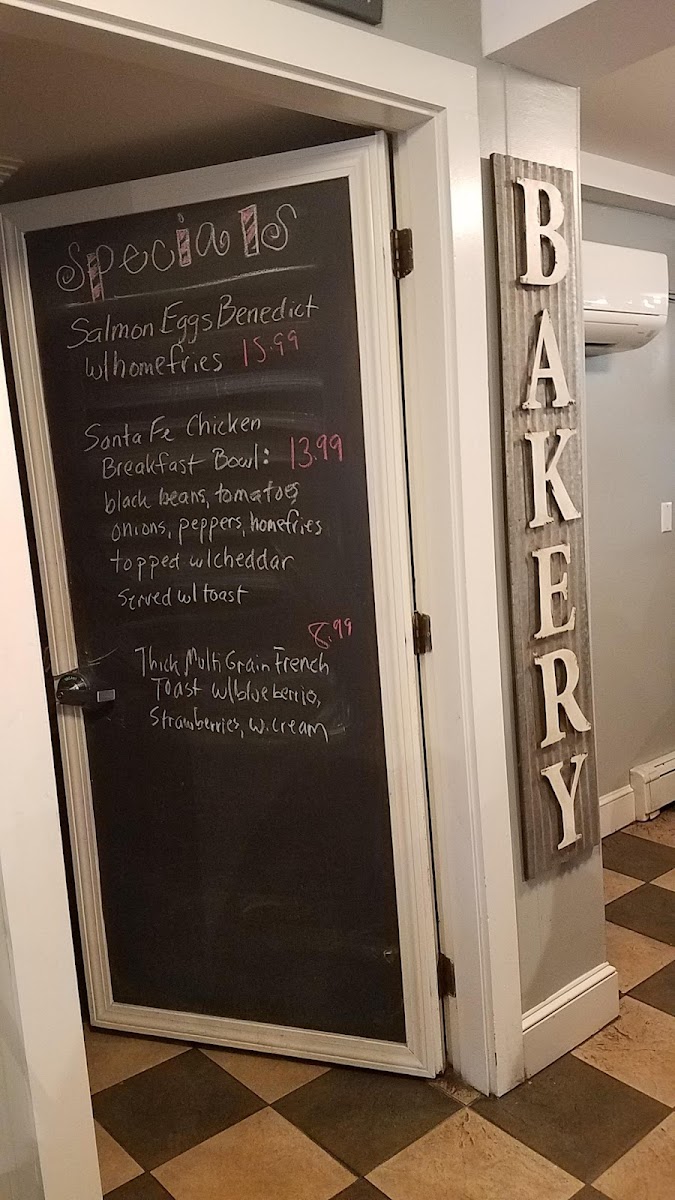 Specials
Salmon Eggs Benedict
w/homefries 15.99
Santa Fe Chicken
Breakfast Bowl: 13.99
black beans, tomatoes
onions, peppers, homefries
topped w/cheddar
Served w/ toast
8.99
Thick Multi Grain French
Toast w/blueberries,
Strawberries, w.cream
BAKERY